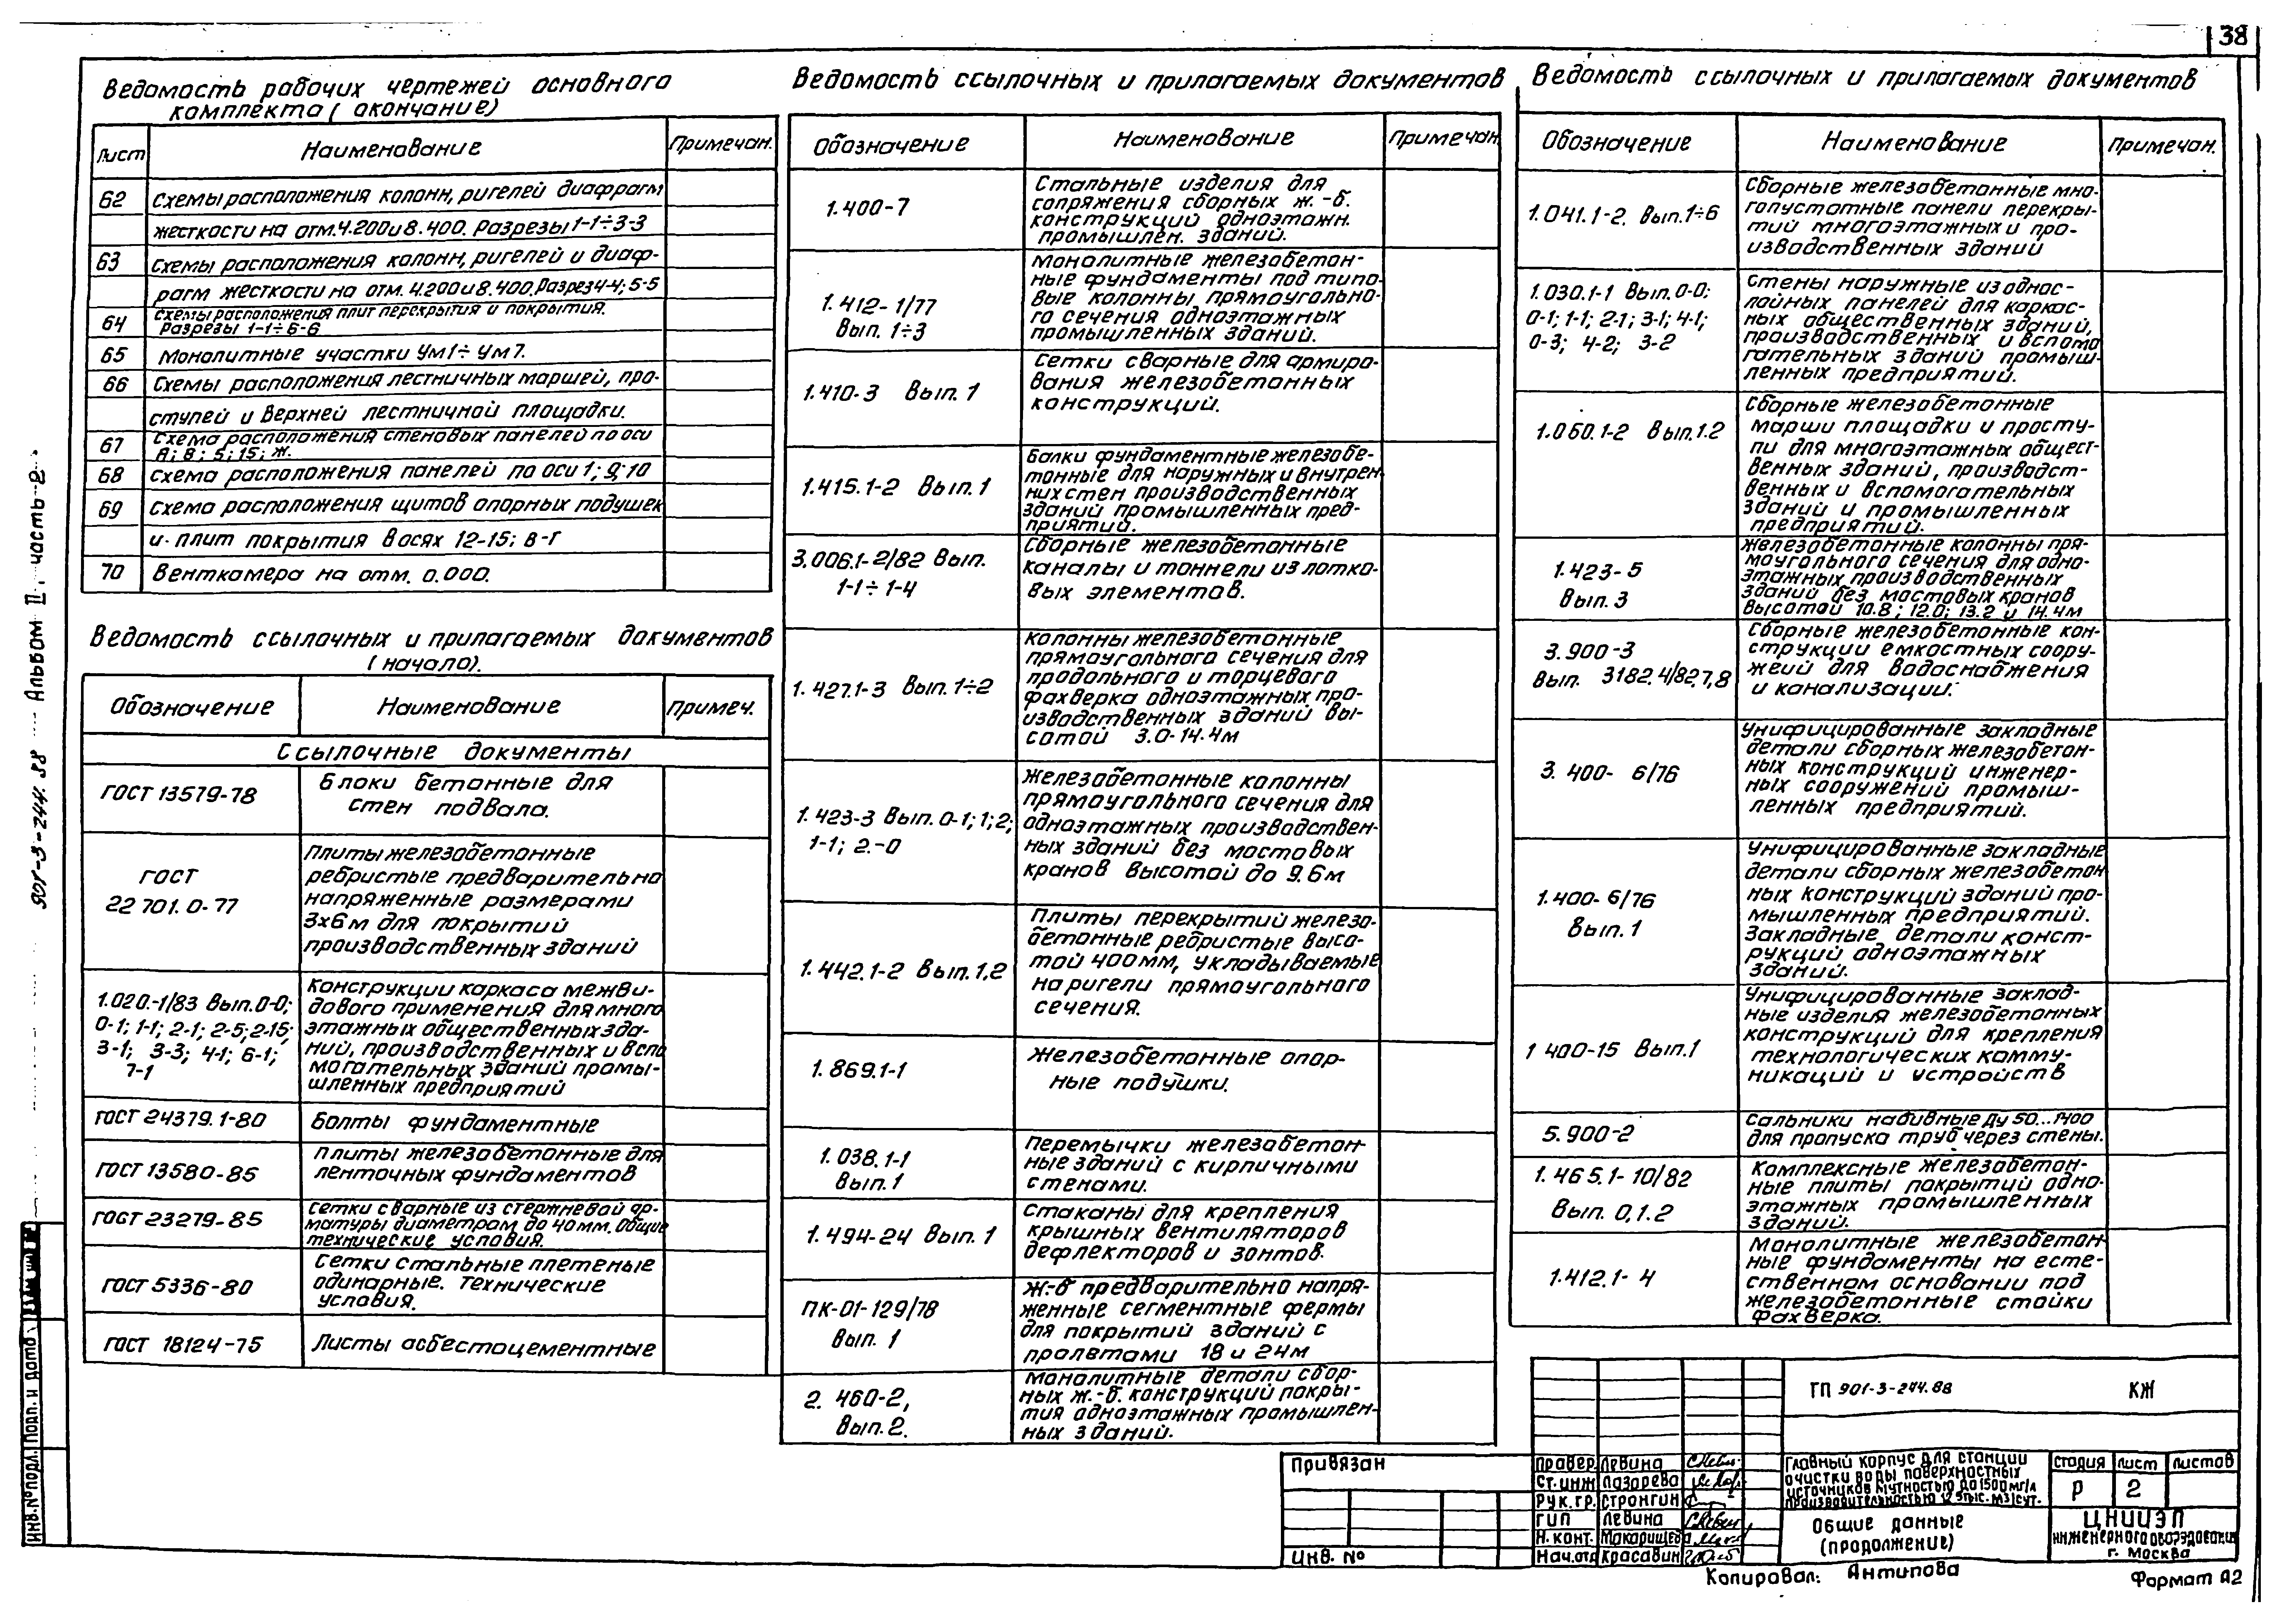 38
Ведомость рабочих чертежей основного
комплекта (окончание)
Лист
Наименование
Примечан.
62
Схемы расположения колонн, ригелей диафрагм
жесткости на отм. 4.200 и 8.400. Разрезы 1-1÷3-3
63
Схемы расположения колонн, ригелей и диаф-
рагм жесткости на отм. 4.200 и 8.400. Разрез 4-4; 5-5
64
Схемы расположения плит перекрытия и покрытия.
Разрезы 1-1÷6-6
65
Монолитные участки Ум1÷Ум7.
66
Схемы расположения лестничных маршей, про-
ступей и верхней лестничной площадки.
67
Схема расположения стеновых панелей по оси
А; В; 5; 15; Ж.
68
Схема расположения панелей по оси 1; 9; 10
69
Схема расположения щитов опорных подушек
и плит покрытия в осях 12-15; В-Г
70
Венткамера на отм. 0.000.
Ведомость ссылочных и прилагаемых документов
(начало).
Обозначение
Наименование
Примеч.
Ссылочные документы
ГОСТ 13579-78
Блоки бетонные для
стен подвала.
ГОСТ
22 701.0-77
Плиты железобетонные
ребристые предварительно
напряженные размерами
3х6м для покрытий
производственных зданий
1.020.-1/83 Вып.0-0;
0-1; 1-1; 2-1; 2-5; 2-15;
3-1; 3-3; 4-1; 6-1;
7-1
Конструкции каркаса межви-
дового применения для много
этажных общественных зда-
ний, производственных и вспо
могательных зданий промы-
шленных предприятий
ГОСТ 24379.1-80
Болты фундаментные
ГОСТ 13580-85
Плиты железобетонные для
ленточных фундаментов
ГОСТ 23279-85
Сетки сварные из стержневой ар-
матуры диаметром до 40мм. Общие
технические условия.
ГОСТ 5336-80
Сетки стальные плетеные
одинарные. Технические
условия.
ГОСТ 18124-75
Листы асбестоцементные
Ведомость ссылочных и прилагаемых документов
Обозначение
Наименование
Примечан.
1.400-7
Стальные изделия для
сопряжения сборных ж.-б.
конструкций одноэтажн.
промышлен. зданий.
1.412-1/77
Вып. 1÷3
Монолитные железобетон-
ные фундаменты под типо-
вые колонны прямоугольно-
го сечения одноэтажных
промышленных зданий.
1.410-3 Вып. 1
Сетки сварные для армиро-
вания железобетонных
конструкций.
1.415.1-2 Вып. 1
Балки фундаментные железобе-
тонные для наружных и внутрен
них стен производственных
зданий промышленных пред-
приятий.
3.006.1-2/82 Вып.
1-1÷1-4
Сборные железобетонные
каналы и тоннели из лотко-
вых элементов.
1.427.1-3 Вып. 1÷2
Колонны железобетонные
прямоугольного сечения для
продольного и торцевого
фахверка одноэтажных про-
изводственных зданий вы-
сотой 3.0-14.4м
1.423-3 Вып. 0-1; 1; 2;
1-1; 2.-0
Железобетонные колонны
прямоугольного сечения для
одноэтажных производствен-
ных зданий без мостовых
кранов высотой до 9.6м
1.442.1-2 Вып. 1,2
Плиты перекрытий железо-
бетонные ребристые высо-
той 400мм, укладываемые
на ригели прямоугольного
сечения.
1.869.1-1
Железобетонные опор-
ные подушки.
1.038.1-1
Вып. 1
Перемычки железобетон-
ные зданий с кирпичными
стенами.
1.494-24 Вып. 1
Стаканы для крепления
крышных вентиляторов
дефлекторов и зонтов.
ПК-01-129/78
Вып. 1
Ж-б предварительно напря-
женные сегментные фермы
для покрытий зданий с
пролетами 18 и 24м
2. 460-2,
Вып. 2.
Монолитные детали сбор-
ных ж.-б. конструкций покры-
тия одноэтажных промышлен-
ных зданий.
Ведомость ссылочных и прилагаемых документов
Обозначение
Наименование
Примечан.
1.041.1-2. Вып. 1÷6
Сборные железобетонные мно-
гопустотные панели перекры-
тий многоэтажных и про-
изводственных зданий
1.030.1-1 Вып. 0-0;
0-1; 1-1; 2-1; 3-1; 4-1;
0-3; 4-2; 3-2
Стены наружные из однос-
лойных панелей для каркас-
ных общественных зданий,
производственных и вспомо
гательных зданий промыш-
ленных предприятий.
1.050.1-2 Вып. 1.2
Сборные железобетонные
марши площадки и просту-
пи для многоэтажных общест-
венных зданий, производст-
венных и вспомогательных
зданий и промышленных
предприятий.
1.423-5
Вып. 3
Железобетонные колонны пря-
моугольного сечения для одно-
этажных производственных
зданий без мостовых кранов
высотой 10.8; 12.0; 13.2 и 14.4м
3.900-3
Вып. 3182.4/82.7,8
Сборные железобетонные кон-
струкции емкостных соору-
жеий для водоснабжения
и канализации.
3. 400- 6/76
Унифицированные закладные
детали сборных железобетон-
ных конструкций инженер-
ных сооружений промыш-
ленных предприятий.
1.400-6/76
Вып. 1
Унифицированные закладные
детали сборных железобетон
ных конструкций зданий про-
мышленных предприятий.
Закладные детали конст-
рукций одноэтажных
зданий.
1 400-15 Вып.1
Унифицированные заклад-
ные изделия железобетонных
конструкций для крепления
технологических комму-
никаций и устройств
5.900-2
Сальники набивные Ду 50...1400
для пропуска труб через стены.
1.465.1-10/82
Вып. 0,1.2
Комплексные железобетон-
ные плиты покрытий одно-
этажных промышленных
зданий.
1.412.1-4
Монолитные железобетон-
ные фундаменты на есте-
ственном основании под
железобетонные стойки
фахверка.
901-3-244.88 Альбом II, часть 2
Инв.№ подл. Подп. и дата
Привязан
Инв. №
ТП 901-3-244.88
КЖ
Провер. Левина
Ст.инж Лазарева
Рук.гр. Стронгин
ГИП Левина
Н.конт. Макарищева
Нач.отд Красавин
Главный корпус для станции
очистки воды поверхностных
источников мутностью до 1500 мг/л
производительностью 12.5 тыс. м3/сут.
Стадия Лист Листов
Р 2
Общие данные
(продолжение)
ЦНИИЭП
инженерного оборудования
г. Москва
Копировал: Антипова
Формат А2